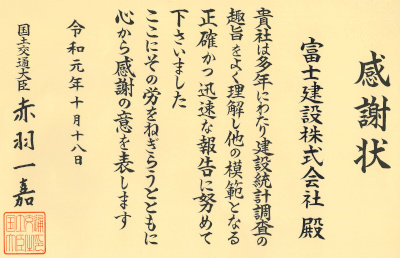 感謝状
富士建設株式会社 殿
貴社は多年にわたり建設統計調査の
趣旨をよく理解し他の模範となる
正確かつ迅速な報告に努めて
下さいました
ここにその労をねぎらうとともに
心から感謝の意を表します
令和元年十月十八日
国土交通大臣 赤羽一嘉